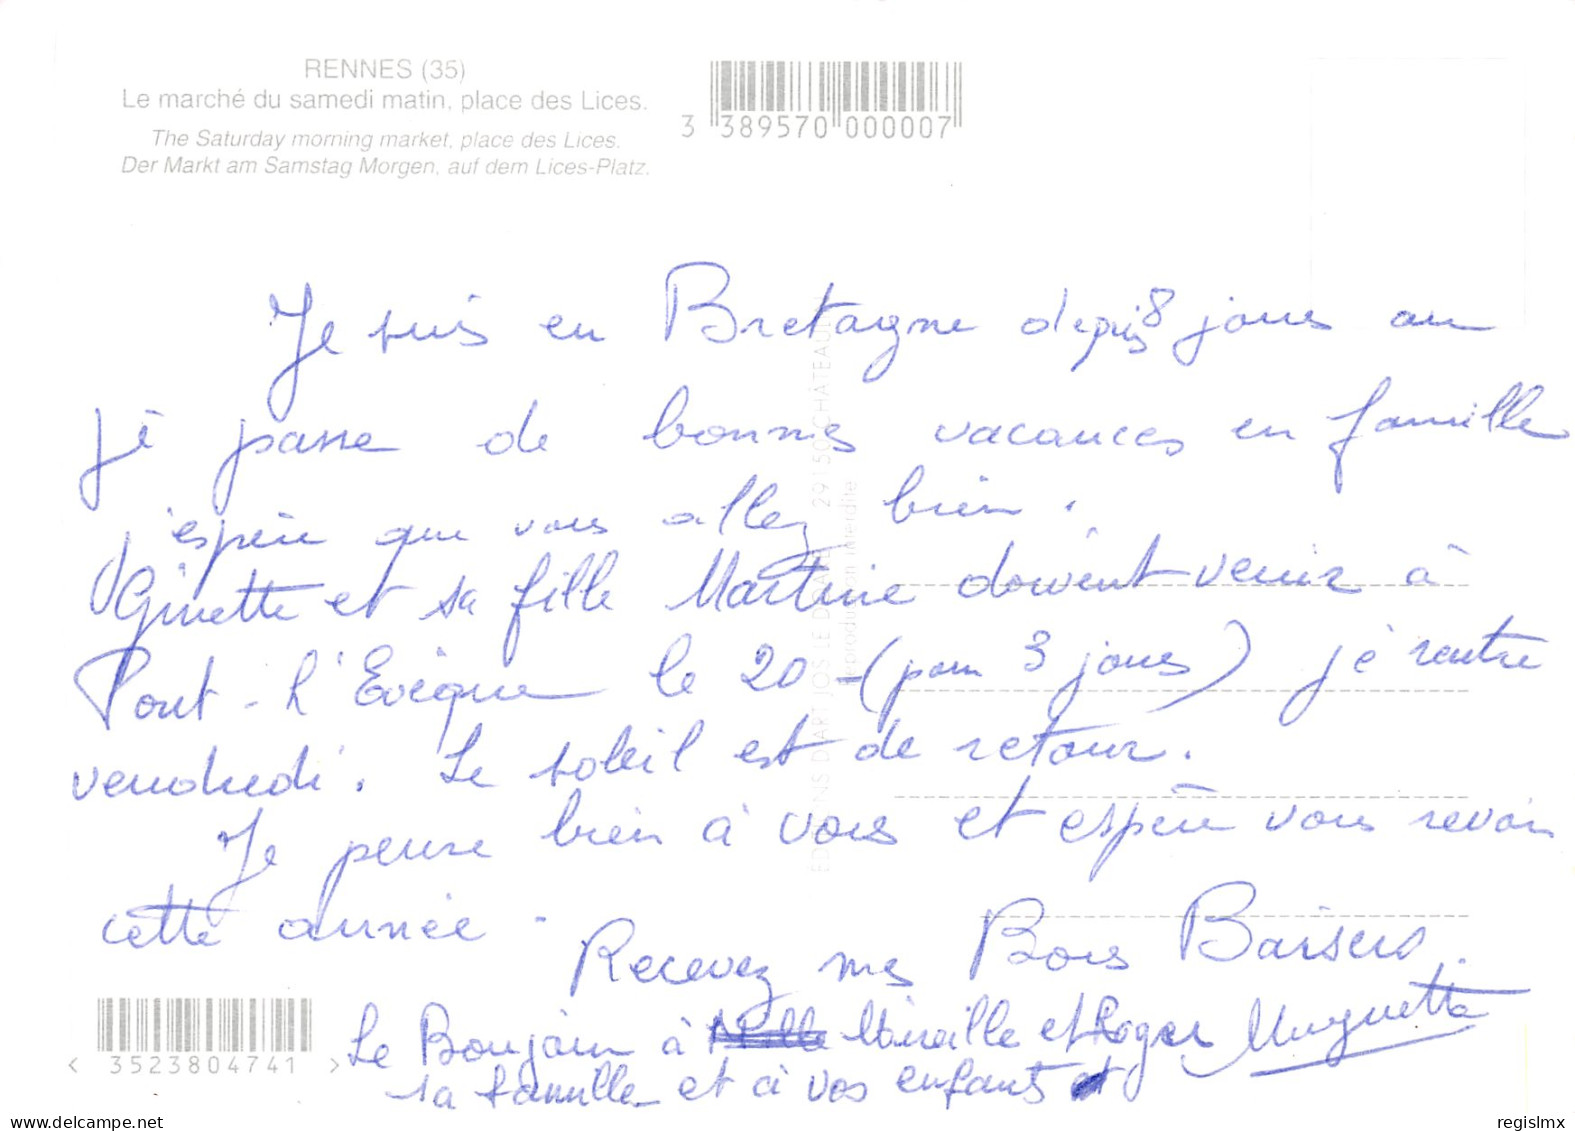 RENNES (35)
Le marché du samedi matin, place des Lices.
The Saturday morning market, place des Lices.
Der Markt am Samstag Morgen, auf dem Lices-Platz.
3 389570 000007
EDITIONS D'ART JOS LE DOARE 29150 CHATEAULIN
Reproduction interdite
Je suis en Bretagne depuis 8 jours ou
je passe de bonnes vacances en famille
j'espère que vous allez bien.
Ginette et sa fille Martine doivent venir à
Pont-l'Evèque le 20 - (pour 3 jours) je rentre
vendredi. Le soleil est de retour.
Je pense bien à vous et espère vous revoir
cette année.
Recevez mes Bons Baisers.
Muguette
Le Bonjour à Mireille et Roger
sa famille et à vos enfants
< 3523804741 >
www.delcampe.net
regislmx